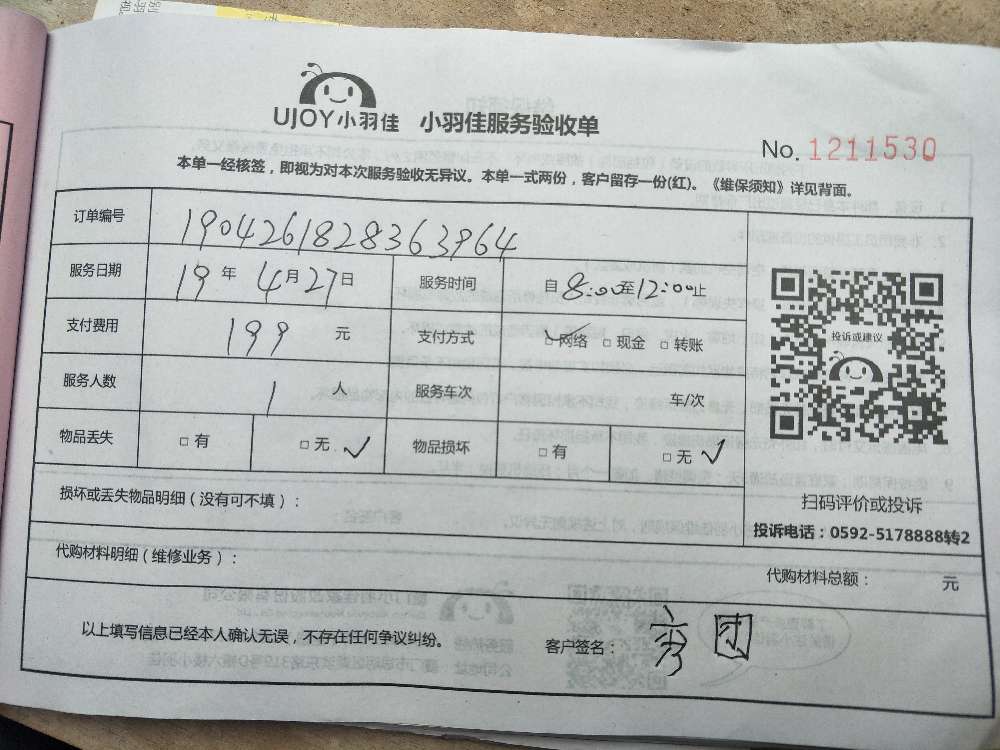 UJOY小羽佳 小羽佳服务验收单
No. 1211530
本单一经核签，即视为对本次服务验收无异议。本单一式两份，客户留存一份(红)。《维保须知》详见背面。
订单编号 1904261828363964
服务日期 19 年 4月27日 服务时间 自8:00至12:00止
支付费用 199 元 支付方式 ☑网络 □现金 □转账
服务人数 1 人 服务车次 车/次
物品丢失 □有 □无 ✓ 物品损坏 □有 □无 ✓
投诉或建议
扫码评价或投诉
投诉电话：0592-5178888转2
损坏或丢失物品明细（没有可不填）：
代购材料明细（维修业务）：
代购材料总额： 元
以上填写信息已经本人确认无误，不存在任何争议纠纷。 客户签名：